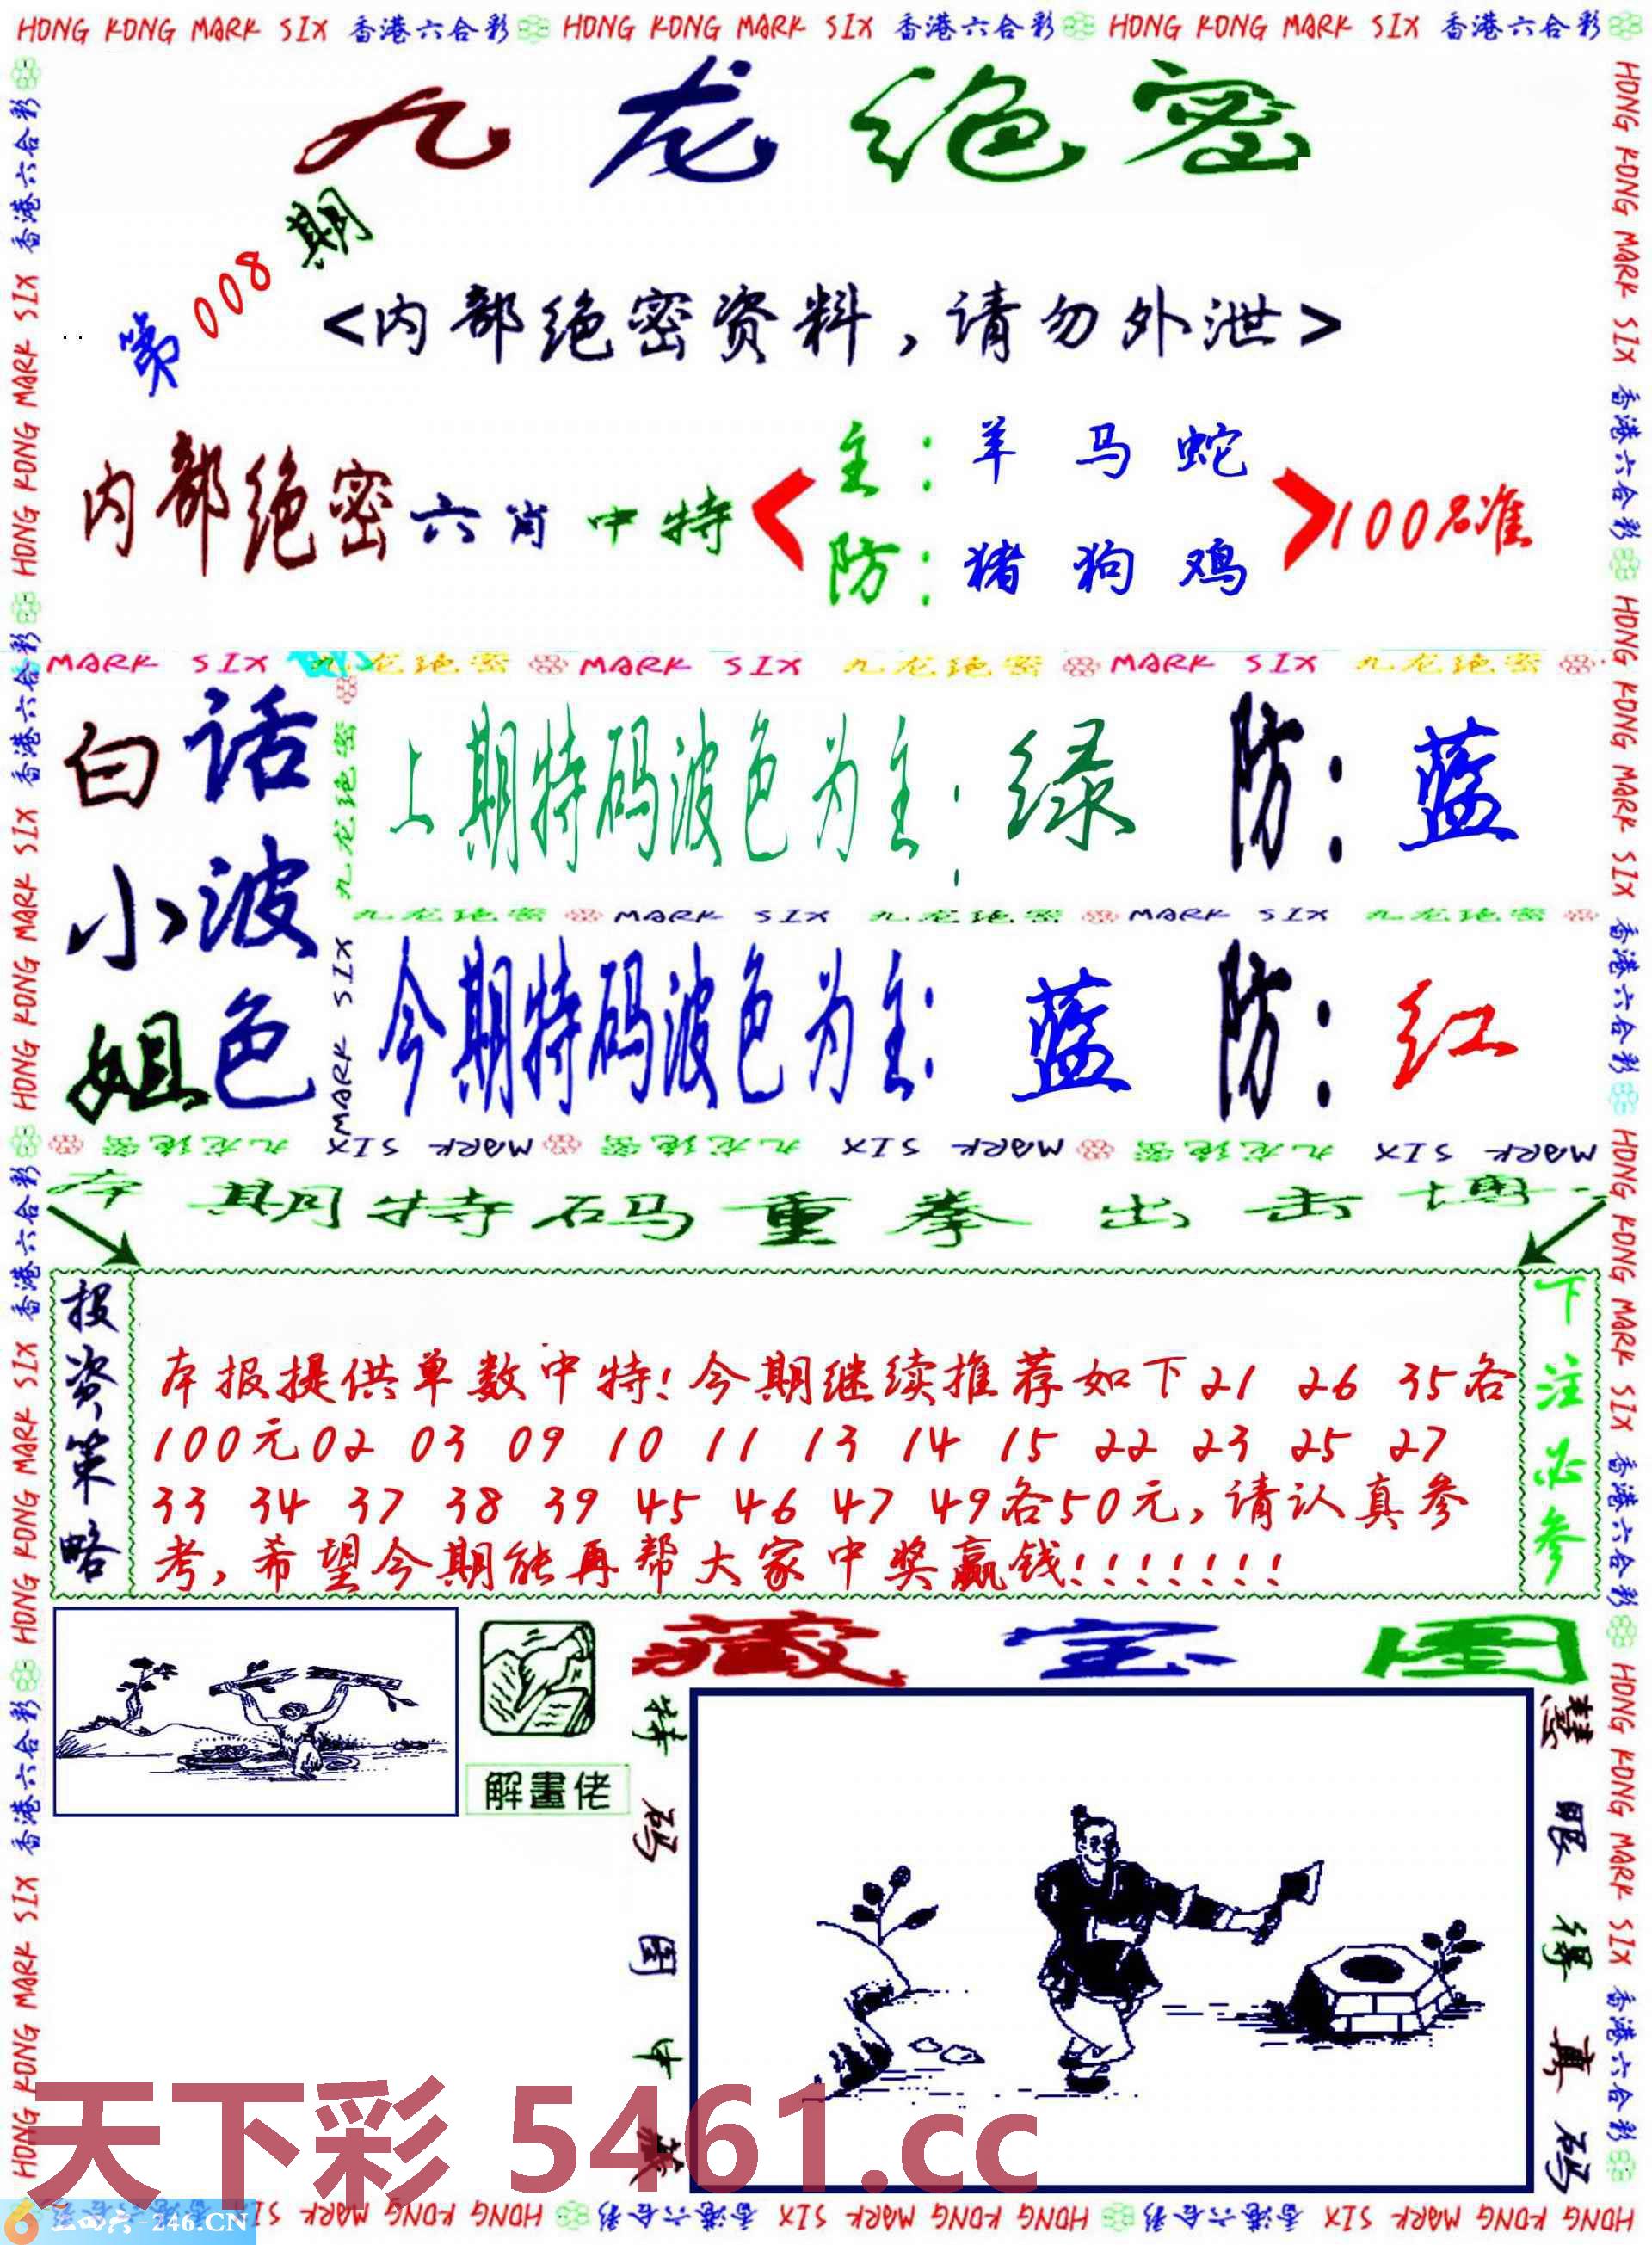 HONG KONG MARK SIX 香港六合彩 HONG KONG MARK SIX 香港六合彩 HONG KONG MARK SIX 香港六合彩
九龙绝密
第008期
<内部绝密资料,请勿外泄>
内部绝密六肖 中特
主: 羊 马 蛇
防: 猪 狗 鸡
100%准
MARK SIX 九龙绝密 MARK SIX 九龙绝密 MARK SIX 九龙绝密
白小姐
话波色
上期特码波色为主: 绿 防: 蓝
九龙绝密 MARK SIX 九龙绝密 MARK SIX 九龙绝密
今期特码波色为主: 蓝 防: 红
MARK SIX 九龙绝密 MARK SIX 九龙绝密 MARK SIX 九龙绝密
本期特码重拳出击博
投资策略
本报提供单数中特!今期继续推荐如下21 26 35各
100元02 03 09 10 11 13 14 15 22 23 25 27
33 34 37 38 39 45 46 47 49各50元,请认真参
考,希望今期能再帮大家中奖赢钱!!!!!!!
下注必参
解畫佬
藏宝图
特码图中藏
慧眼得真码
天下彩 5461.cc
二四六-246.CN
HONG KONG MARK SIX 香港六合彩 HONG KONG MARK SIX 香港六合彩 HONG KONG MARK SIX 香港六合彩